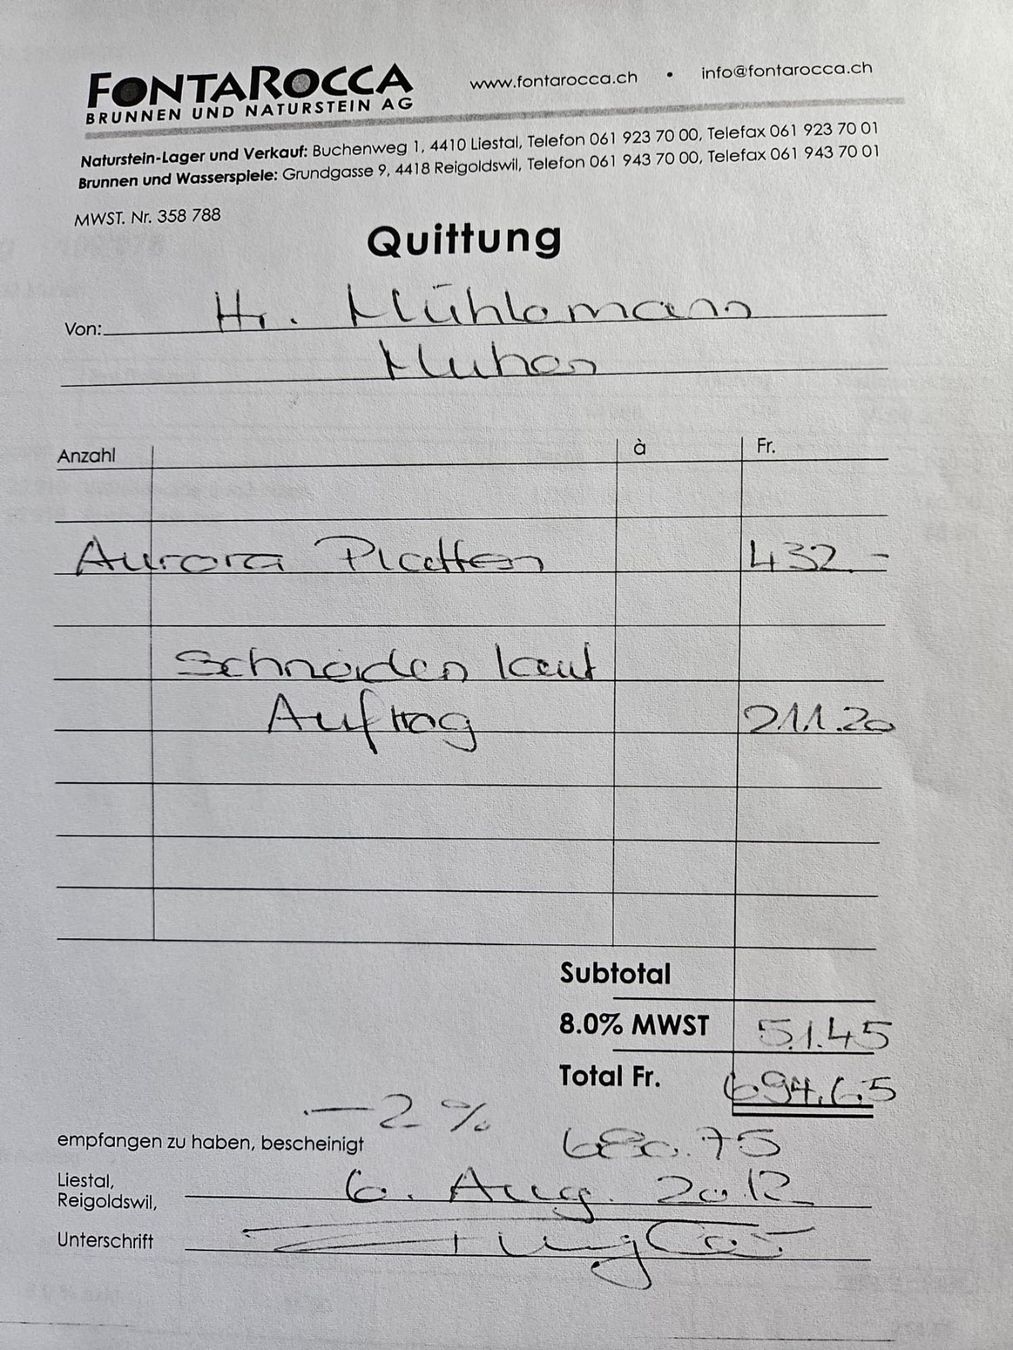 FONTAROCCA
BRUNNEN UND NATURSTEIN AG
www.fontarocca.ch • info@fontarocca.ch
Naturstein-Lager und Verkauf: Buchenweg 1, 4410 Liestal, Telefon 061 923 70 00, Telefax 061 923 70 01
Brunnen und Wasserspiele: Grundgasse 9, 4418 Reigoldswil, Telefon 061 943 70 00, Telefax 061 943 70 01
MWST. Nr. 358 788
Quittung
Von: Hr. Mühlemann
Muhen
Anzahl à Fr.
Aurora Platten 432.–
Schneiden laut
Auftrag 211.20
Subtotal
8.0% MWST 51.45
Total Fr. 694.65
–2 %
empfangen zu haben, bescheinigt 680.75
Liestal,
Reigoldswil, 6. Aug. 2012
Unterschrift